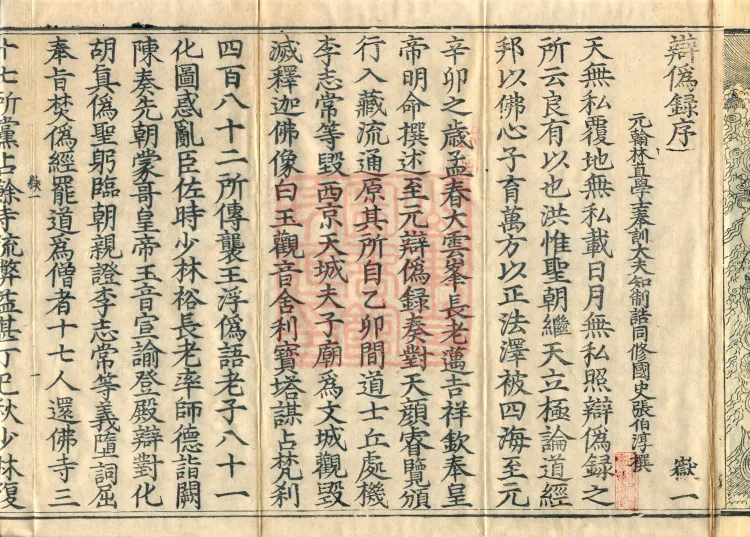 辯僞録序 嶽一
元翰林直學士奉訓大夫知制誥同修國史張伯淳撰
天無私覆地無私載日月無私照辯僞録之
所云良有以也洪惟聖朝繼天立極論道經
邦以佛心子育萬方以正法澤被四海至元
辛卯之歲孟春大雲峯長老萬吉祥欽奉呈
帝明命撰述至元辯僞録奏對天顔睿覽頒
行入藏流通原其所自乙卯間道士丘處機
李志常等毀西京天城夫子廟爲文城觀毀
滅釋迦佛像白玉觀音舍利寶塔謀占梵刹
四百八十二所傳襲王浮僞語老子八十一
化圖惑亂臣佐時少林裕長老率師德詣闕
陳奏先朝蒙哥皇帝玉音宣諭登殿辯對化
胡真僞聖躬臨朝親證李志常等義墮詞屈
奉旨焚僞經罷道爲僧者十七人還佛寺三
嶽一 一
十七所黨占餘寺流弊益甚丁巳秋少林復